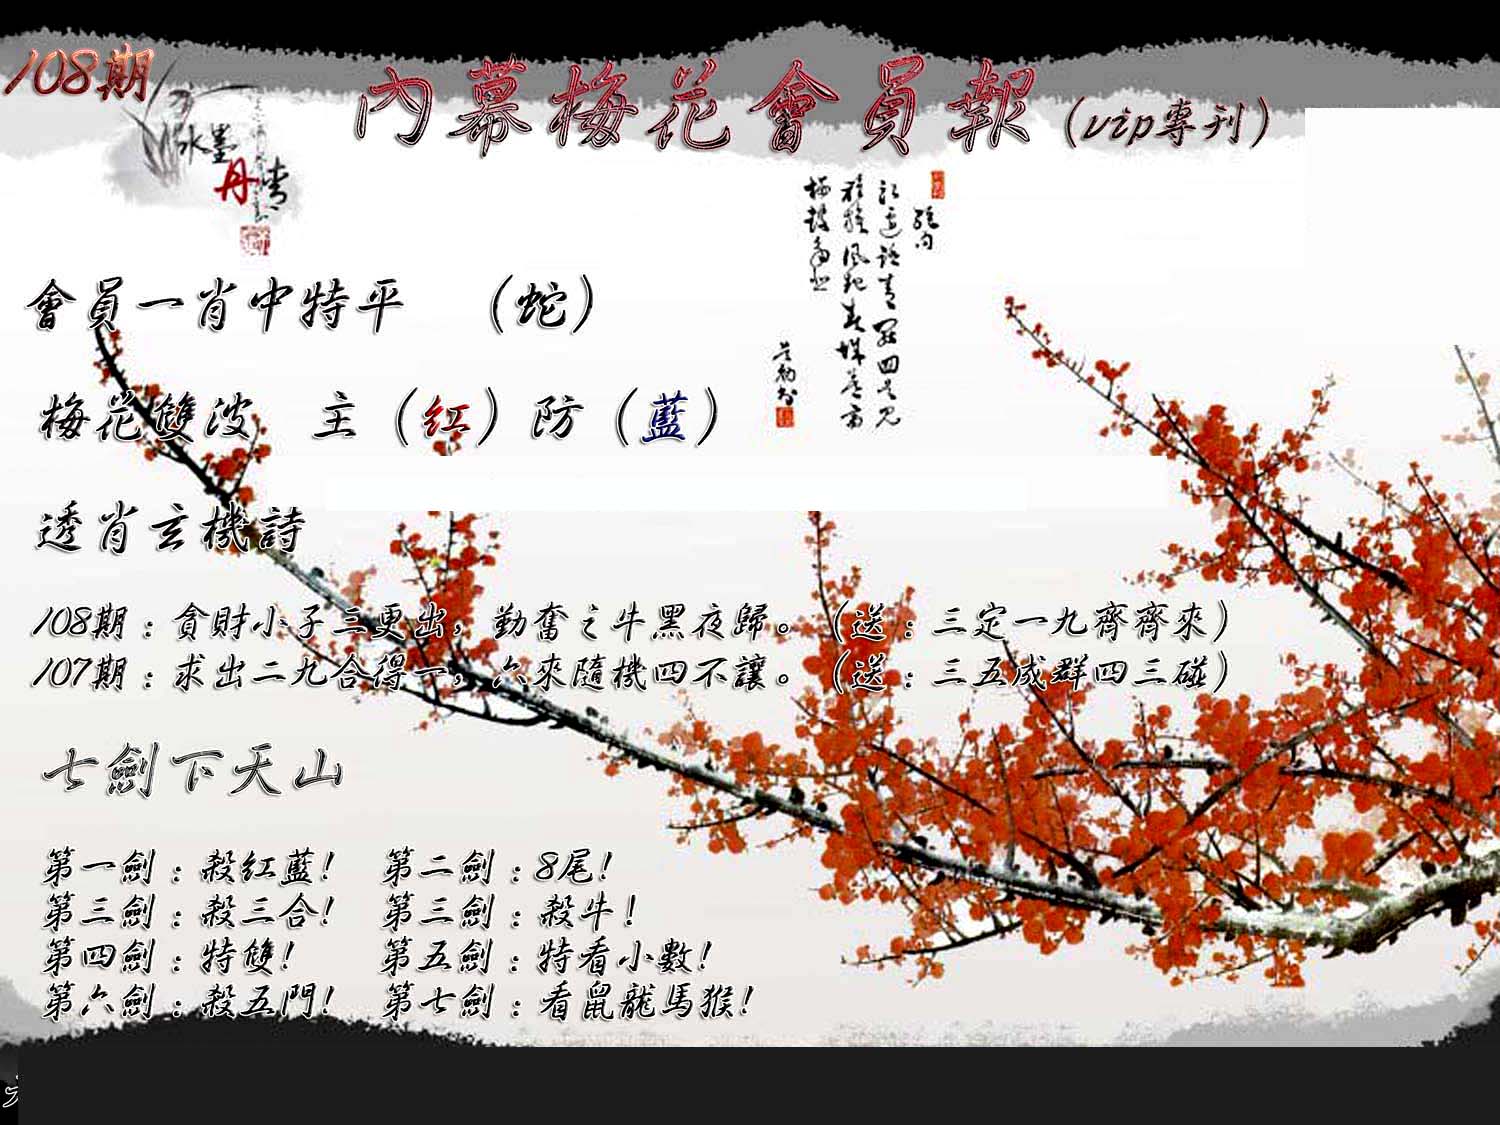 108期
內幕梅花會員報(vip專刊)
水墨
丹青
絕句
會員一肖中特平 (蛇)
梅花雙波 主(紅)防(藍)
透肖玄機詩
108期:貪財小子三更出,勤奮之牛黑夜歸。(送:三定一九齊齊來)
107期:求出二九合得一,六來隨機四不讓。(送:三五成群四三碰)
七劍下天山
第一劍:殺紅藍! 第二劍:8尾!
第三劍:殺三合! 第三劍:殺牛!
第四劍:特雙! 第五劍:特看小數!
第六劍:殺五門! 第七劍:看鼠龍馬猴!